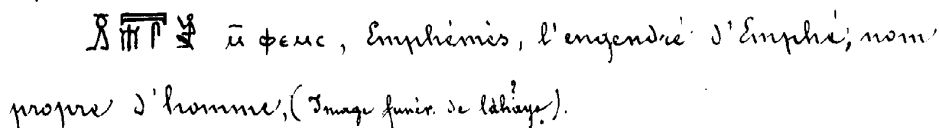 ⲙ̄ ⲫⲉⲙⲥ, Emphémès, l'engendré d'Emphé; nom
propre d'homme, (Image funér. de ).